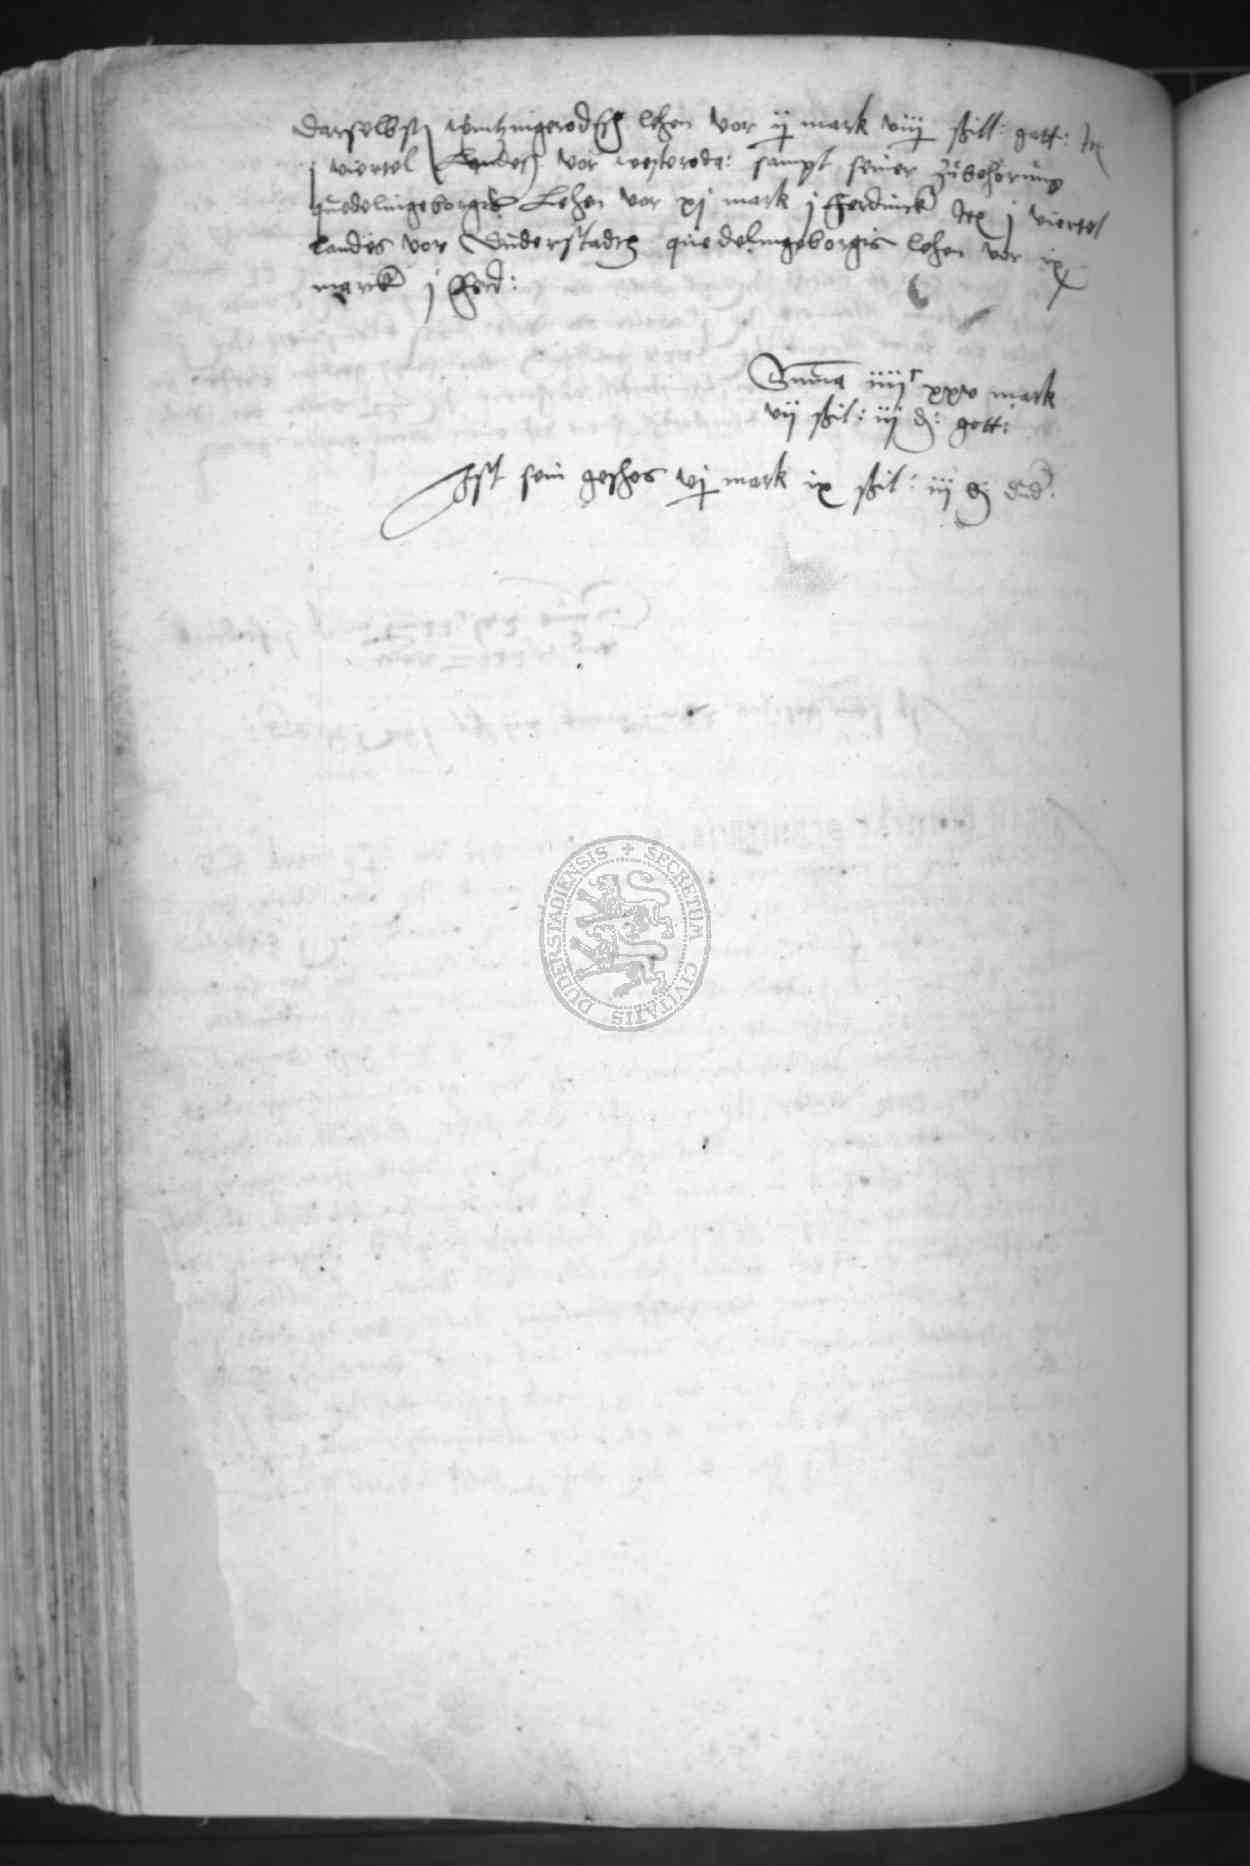 darselbst wintzingerodisch lehen vor ij mark viij ßill: gott: Itē
j viertel Landes vor westeroda: sampt seiner zubehorung
quedelingeborgis Lehen vor xj mark j ferdinck Itē j viertel
landes vor Duderstadt quedelingeborgis lehen vor ix
marck j ferd:
Summa iiijᶜ xxv mark
vij ßil: iij d: gott:
Ist sein geschos vj mark ix ßil: iij d dud:
SECRETUM CIVITATIS DUDERSTADIENSIS